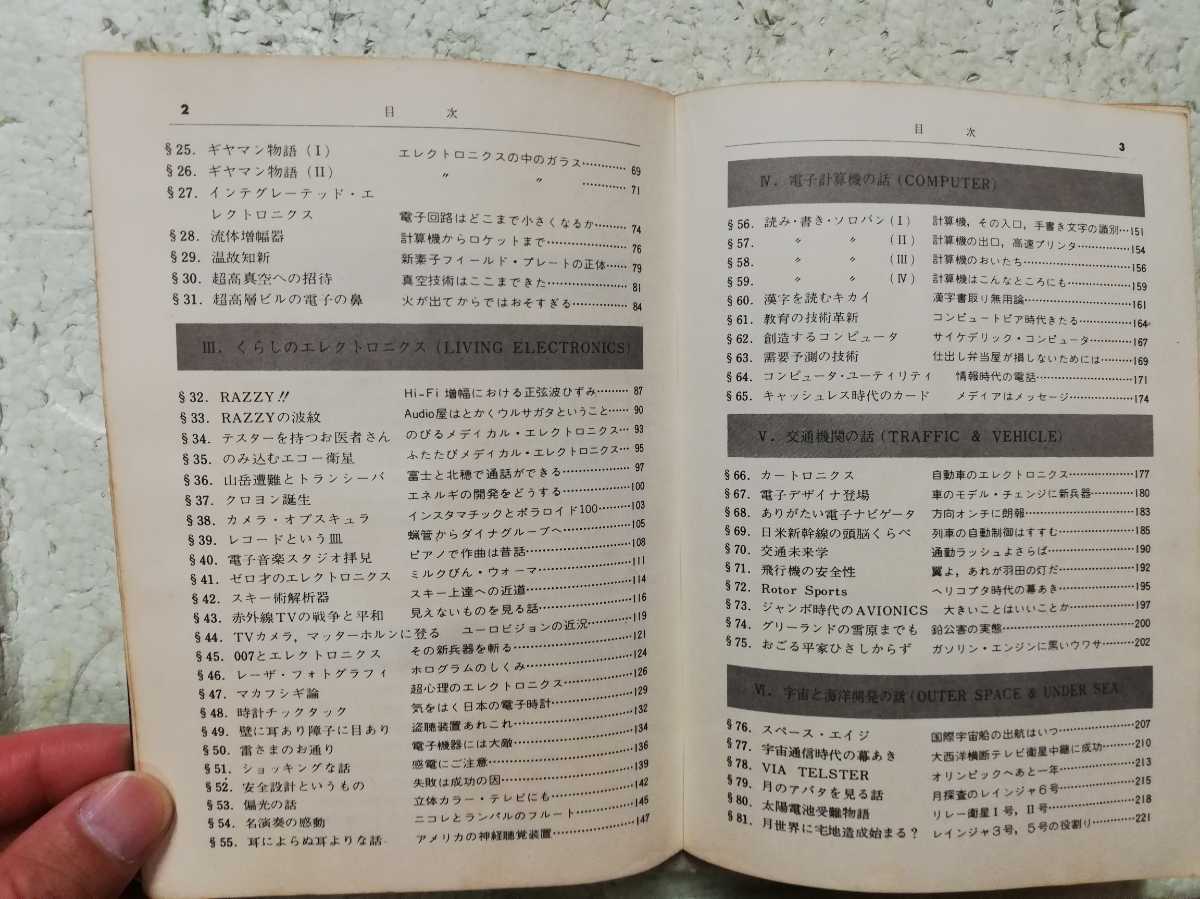 2 目次
§25. ギヤマン物語 (I) エレクトロニクスの中のガラス………… 69
§26. ギヤマン物語 (II) 〃 〃 ………… 71
§27. インテグレーテッド・エ
レクトロニクス 電子回路はどこまで小さくなるか…… 74
§28. 流体増幅器 計算機からロケットまで……………… 76
§29. 温故知新 新素子フイールド・プレートの正体… 79
§30. 超高真空への招待 真空技術はここまできた……………… 81
§31. 超高層ビルの電子の鼻 火が出てからではおそすぎる………… 84
III. くらしのエレクトロニクス (LIVING ELECTRONICS)
§32. RAZZY!! Hi-Fi 増幅における正弦波ひずみ……… 87
§33. RAZZYの波紋 Audio屋はとかくウルサガタということ…… 90
§34. テスターを持つお医者さん のびるメディカル・エレクトロニクス… 93
§35. のみ込むエコー衛星 ふたたびメディカル・エレクトロニクス… 95
§36. 山岳遭難とトランシーバ 富士と北穂で通話ができる…………… 97
§37. クロヨン誕生 エネルギの開発をどうする……………100
§38. カメラ・オブスキュラ インスタマチックとポラロイド100………103
§39. レコードという皿 蝋管からダイナグループへ……………105
§40. 電子音楽スタジオ拝見 ピアノで作曲は昔話…………………108
§41. ゼロ才のエレクトロニクス ミルクびん・ウォーマ………………111
§42. スキー術解析器 スキー上達への近道…………………114
§43. 赤外線TVの戦争と平和 見えないものを見る話………………116
§44. TVカメラ,マッターホルンに登る ユーロビジョンの近況……………119
§45. 007とエレクトロニクス その新兵器を斬る……………………121
§46. レーザ・フォトグラフィ ホログラムのしくみ…………………124
§47. マカフシギ論 超心理のエレクトロニクス……………126
§48. 時計チックタック 気をはく日本の電子時計………………129
§49. 壁に耳あり障子に目あり 盗聴装置あれこれ……………………132
§50. 雷さまのお通り 電子機器には大敵……………………134
§51. ショッキングな話 感電にご注意…………………………136
§52. 安全設計というもの 失敗は成功の因………………………139
§53. 偏光の話 立体カラー・テレビにも………………142
§54. 名演奏の感動 ニコレとランパルのフルート…………145
§55. 耳によらぬ耳よりな話 アメリカの神経聴覚装置………………147
目次 3
IV. 電子計算機の話 (COMPUTER)
§56. 読み・書き・ソロバン (I) 計算機,その入口,手書き文字の識別…151
§57. 〃 〃 (II) 計算機の出口,高速プリンタ…………154
§58. 〃 〃 (III) 計算機のおいたち……………………156
§59. 〃 〃 (IV) 計算機はこんなところにも……………159
§60. 漢字を読むキカイ 漢字書取り無用論……………………161
§61. 教育の技術革新 コンピュートピア時代きたる…………164
§62. 創造するコンピュータ サイケデリック・コンピュータ………167
§63. 需要予測の技術 仕出し弁当屋が損しないためには……169
§64. コンピュータ・ユーティリティ 情報時代の電話……………………171
§65. キャッシュレス時代のカード メディアはメッセージ……………174
V. 交通機関の話 (TRAFFIC & VEHICLE)
§66. カートロニクス 自動車のエレクトロニクス……………177
§67. 電子デザイナ登場 車のモデル・チェンジに新兵器………180
§68. ありがたい電子ナビゲータ 方向オンチに朗報……………………183
§69. 日米新幹線の頭脳くらべ 列車の自動制御はすすむ………………185
§70. 交通未来学 通勤ラッシュよさらば………………190
§71. 飛行機の安全性 翼よ,あれが羽田の灯だ………………192
§72. Rotor Sports ヘリコプタ時代の幕あき………………195
§73. ジャンボ時代のAVIONICS 大きいことはいいことか……………197
§74. グリーランドの雪原までも 鉛公害の実態…………………………200
§75. おごる平家ひさしからず ガソリン・エンジンに黒いウワサ……202
VI. 宇宙と海洋開発の話 (OUTER SPACE & UNDER SEA)
§76. スペース・エイジ 国際宇宙船の出航はいつ………………207
§77. 宇宙通信時代の幕あき 大西洋横断テレビ衛星中継に成功……210
§78. VIA TELSTER オリンピックへあと一年………………213
§79. 月のアバタを見る話 月探査のレインジャ6号………………215
§80. 太陽電池受難物語 リレー衛星I号,II号…………………218
§81. 月世界に宅地造成始まる? レインジャ3号,5号の役割り…………221